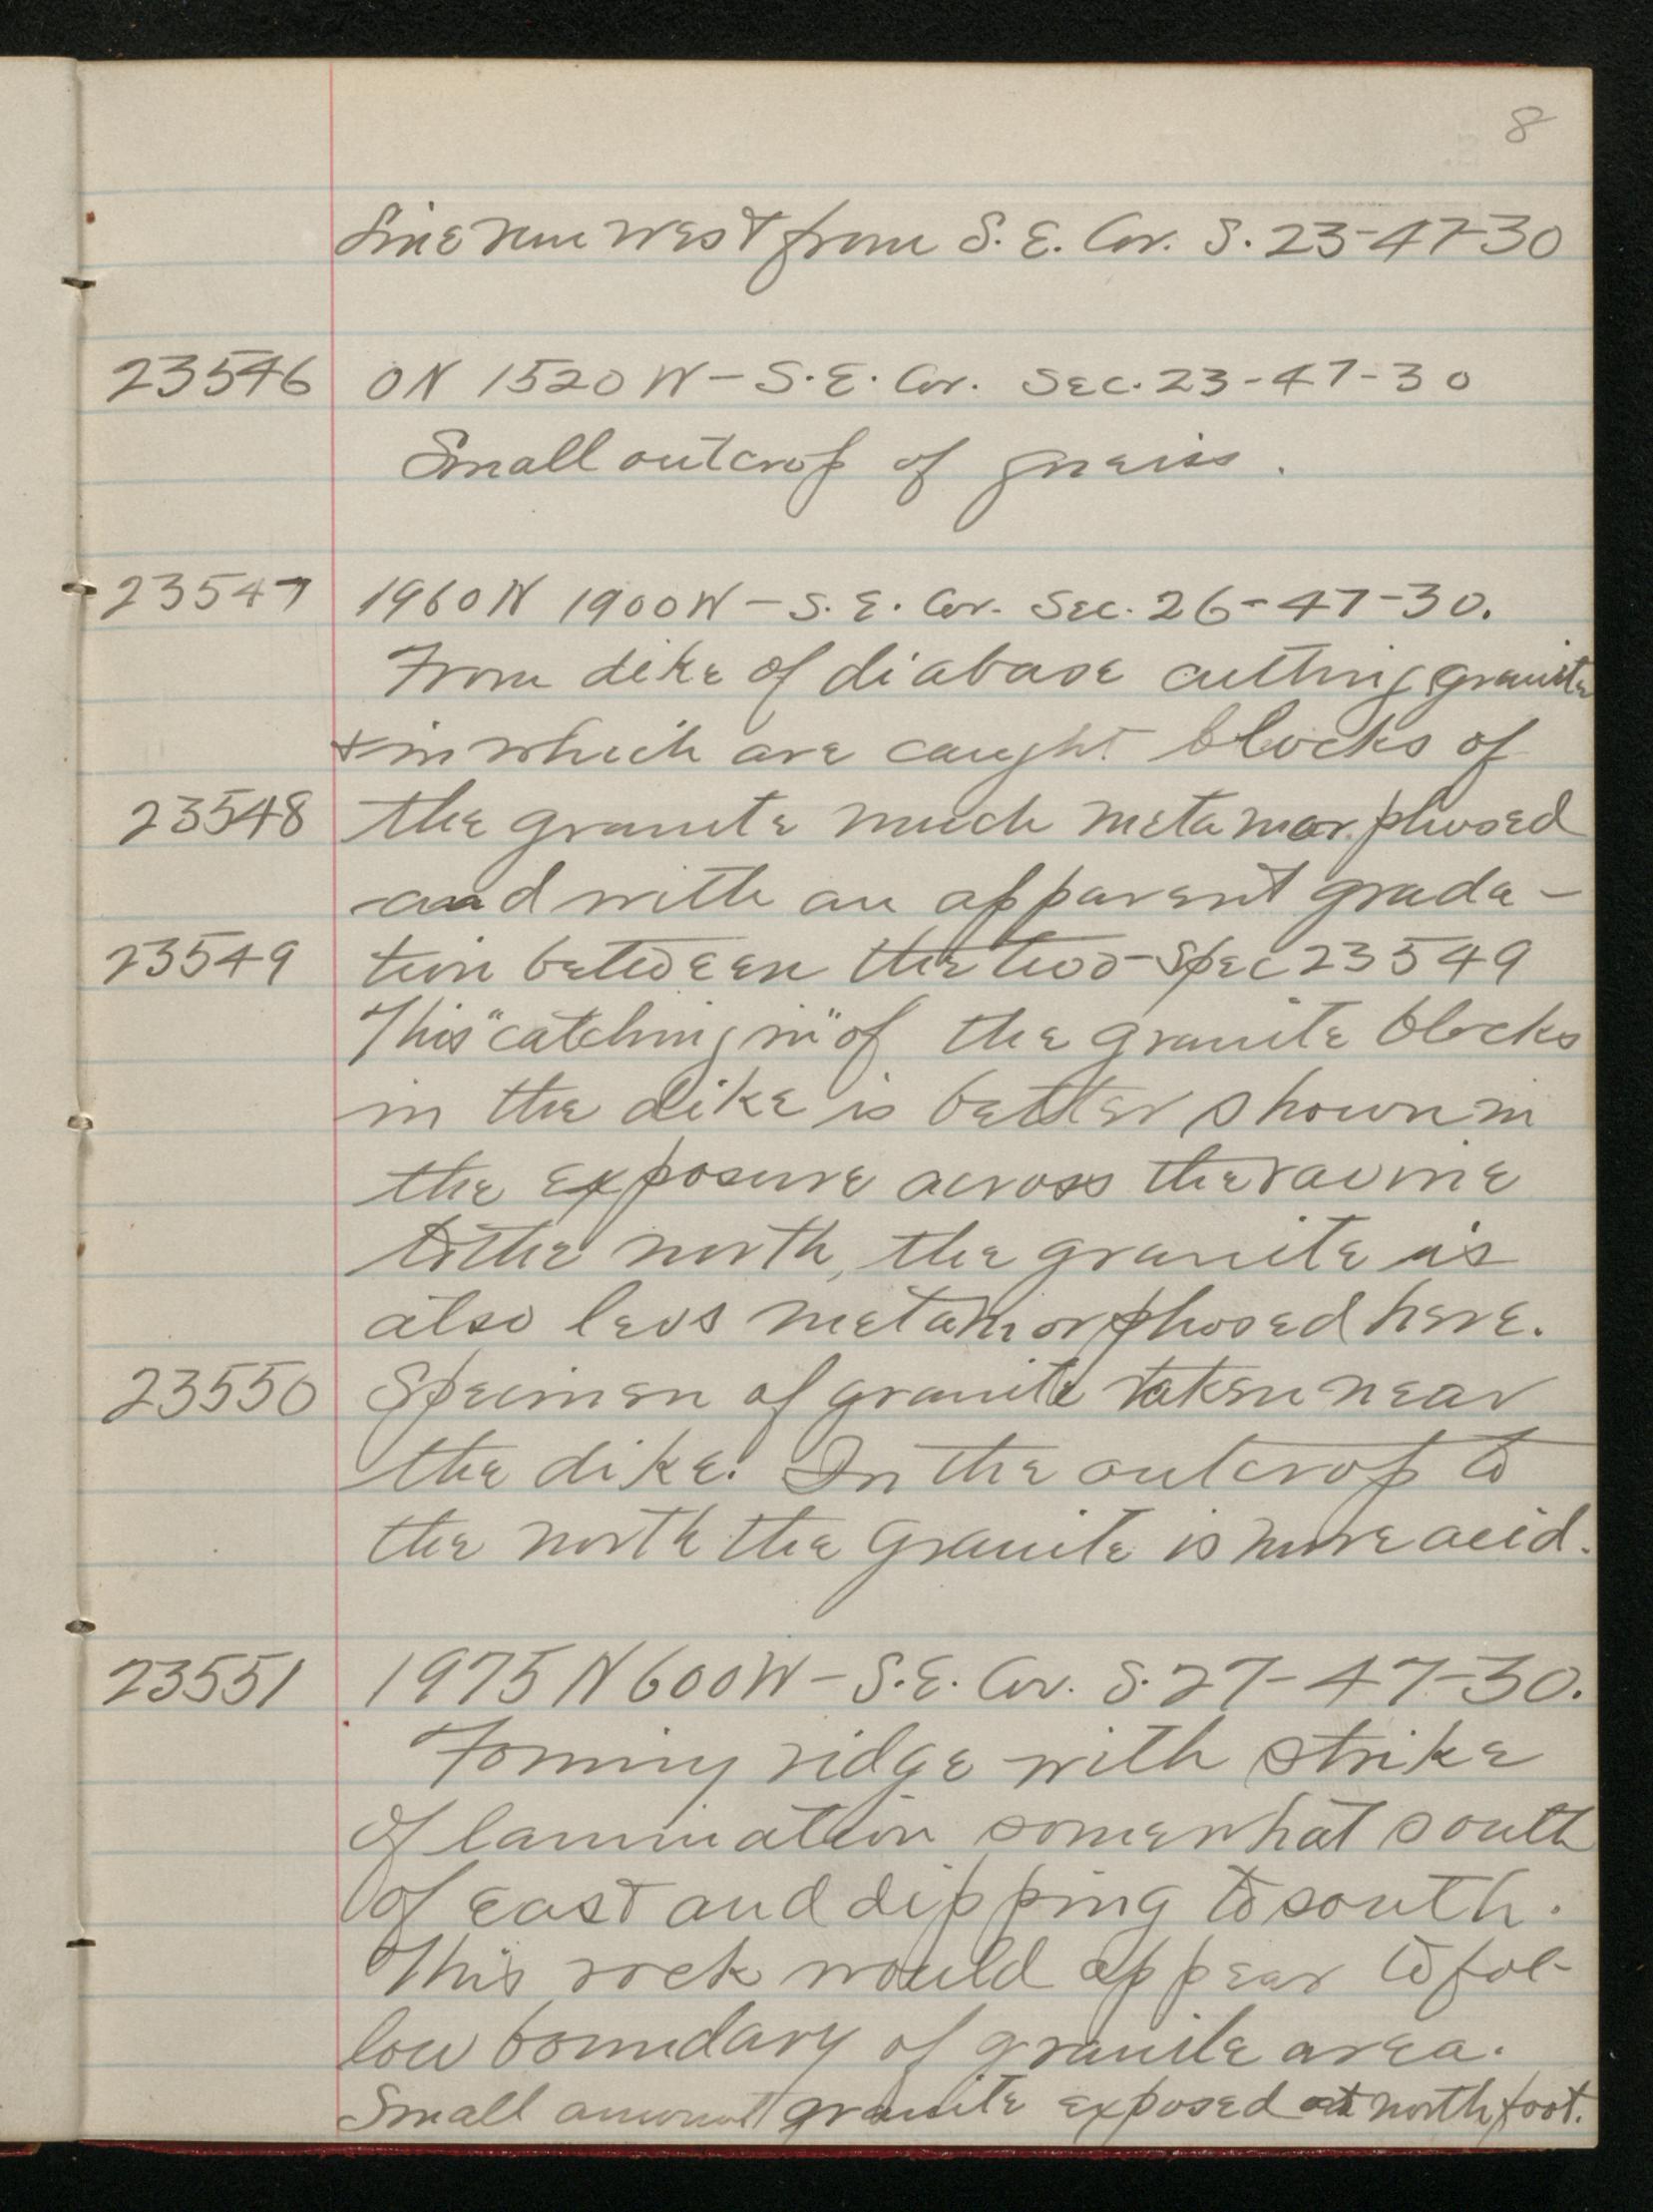 8
Line run west from S. E. Cor. S. 23-47-30
23546 0 N 1520 W - S. E. Cor. Sec. 23-47-30
Small outcrop of gneiss.
23547 1960 N 1900 W - S. E. Cor. Sec. 26-47-30.
From dike of diabase cutting granite
& in which are caught blocks of
23548 the granite much metamorphosed
and with an apparent grada-
23549 tion between the two - Spec 23549
This "catching in" of the granite blocks
in the dike is better shown in
the exposure across the ravine
to the north, the granite is
also less metamorphosed here.
23550 Specimen of granite taken near
the dike. In the outcrop to
the north the granite is more acid.
23551 1975 N 600 W - S. E. Cor. S. 27-47-30.
Forming ridge with strike
of lamination somewhat south
of east and dipping to south.
This rock would appear to fol-
low boundary of granite area.
Small amount granite exposed at north foot.